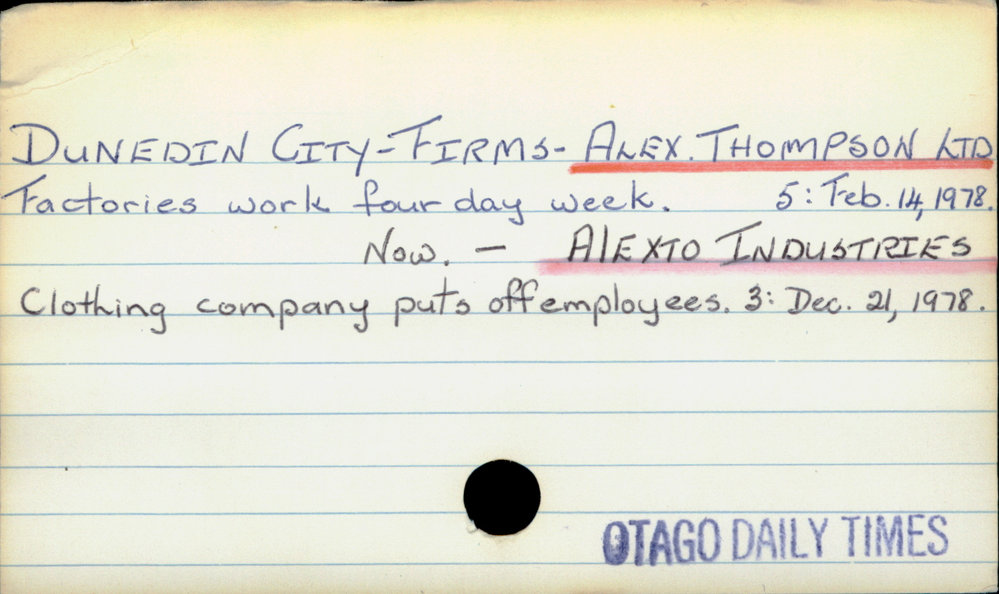 DUNEDIN CITY-FIRMS- ALEX. THOMPSON LTD
Factories work four day week. 5: Feb. 14, 1978.
Now. — AlEXTO INDUSTRIES
Clothing company puts off employees. 3: Dec. 21, 1978.
OTAGO DAILY TIMES